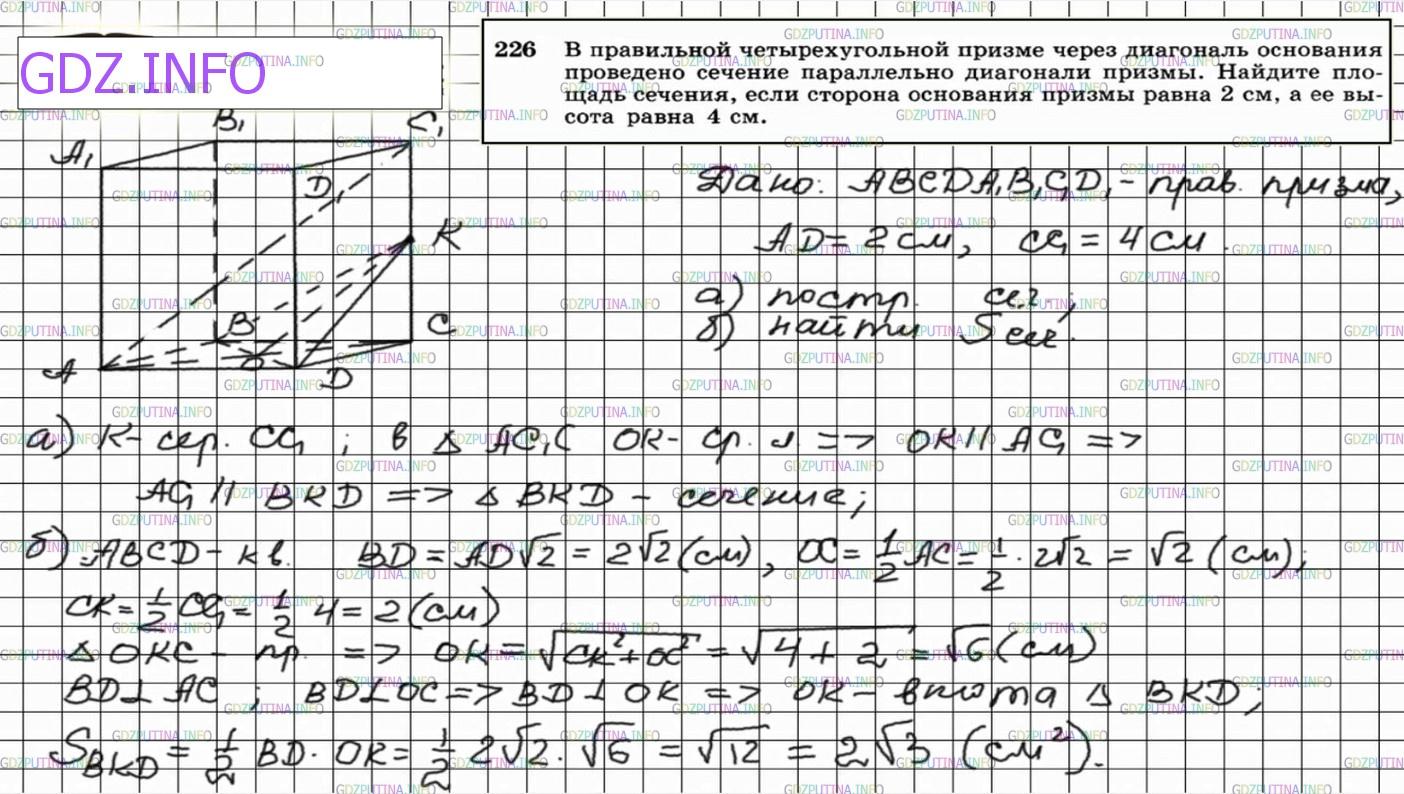 GDZ.INFO
226 В правильной четырехугольной призме через диагональ основания
проведено сечение параллельно диагонали призмы. Найдите пло-
щадь сечения, если сторона основания призмы равна 2 см, а ее вы-
сота равна 4 см.
A₁ B₁ C₁ D₁ K
A B C D O
Дано: ABCDA₁B₁C₁D₁ - прав. призма,
AD = 2 см, CC₁ = 4 см.
а) постр. сеч.;
б) найти Sсеч.
а) K - сер. CC₁; в △ AC₁C OK - ср. л. => OK || AC₁ =>
AC₁ || BKD => △ BKD - сечение;
б) ABCD - кв. BD = AD√2 = 2√2 (см), OC = 1/2 AC = 1/2 · 2√2 = √2 (см);
CK = 1/2 CC₁ = 1/2 4 = 2 (см)
△ OKC - пр. => OK = √(CK² + OC²) = √(4 + 2) = √6 (см)
BD ⊥ AC; BD ⊥ OC => BD ⊥ OK => OK - высота △ BKD;
S_BKD = 1/2 BD · OK = 1/2 2√2 · √6 = √12 = 2√3 (см²).
GDZPUTINA.INFO